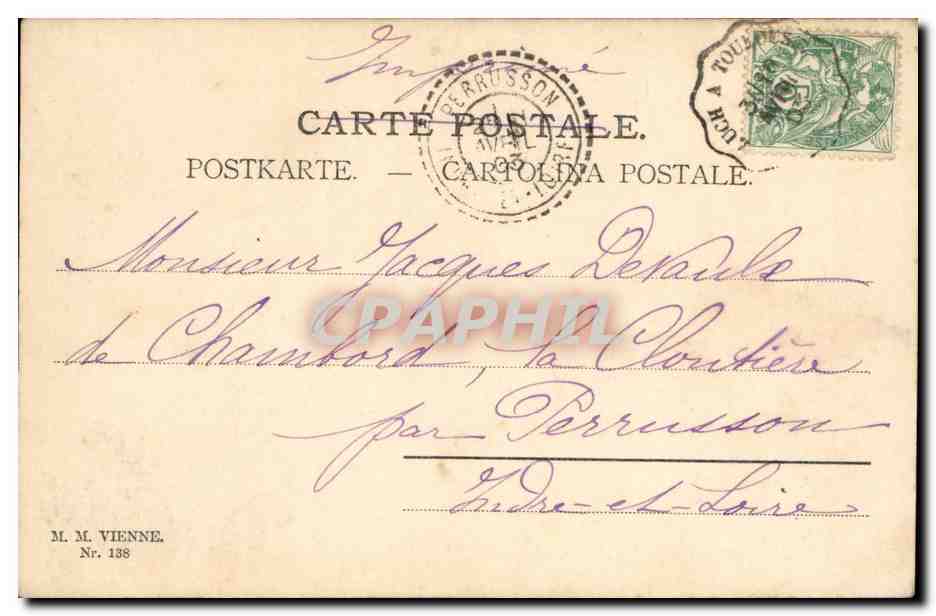 Imprimé
CARTE POSTALE.
POSTKARTE. — CARTOLINA POSTALE.
PERRUSSON
AVRIL
03
LUCH A TOULOUSE
5
Monsieur Jacques Devaulx
de Chambord, la Cloutière
par Perrusson
Indre-et-Loire
CPAPHIL
M. M. VIENNE.
Nr. 138